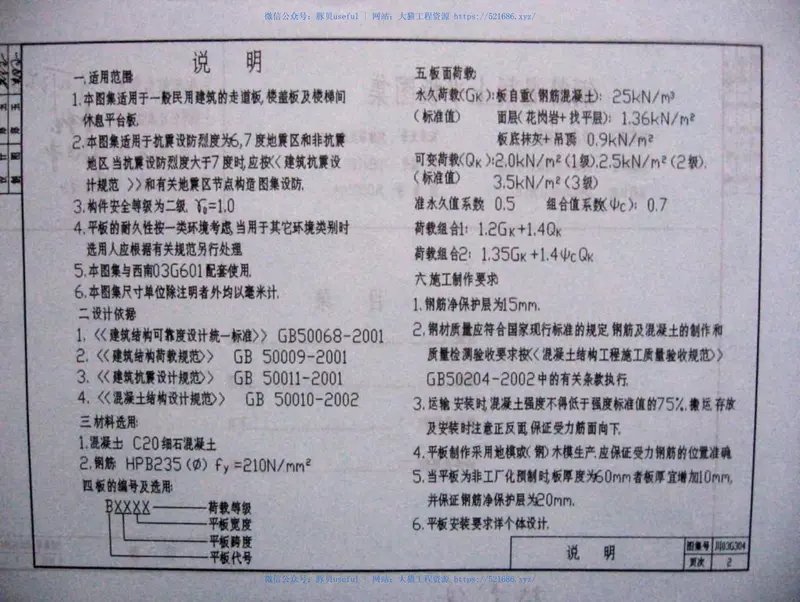 微信公众号：豚贝useful | 网站：大猫工程资源 https://521686.xyz/
说 明
一.适用范围:
1.本图集适用于一般民用建筑的走道板,楼盖板及楼梯间
休息平台板.
2.本图集适用于抗震设防烈度为6,7度地震区和非抗震
地区.当抗震设防烈度大于7度时,应按<<建筑抗震设
计规范 >>和有关地震区节点构造图集设防.
3.构件安全等级为二级. γ₀=1.0
4.平板的耐久性按一类环境考虑.当用于其它环境类别时
选用人应根据有关规范另行处理.
5.本图集与西南03G601配套使用.
6.本图集尺寸单位除注明者外均以毫米计.
二.设计依据
1. <<建筑结构可靠度设计统一标准>> GB50068-2001
2. <<建筑结构荷载规范>> GB 50009-2001
3. <<建筑抗震设计规范>> GB 50011-2001
4. <<混凝土结构设计规范>> GB 50010-2002
三.材料选用:
1.混凝土: C20细石混凝土
2.钢筋: HPB235(Φ) fy=210N/mm²
四.板的编号及选用:
BXXXX
荷载等级
平板宽度
平板跨度
平板代号
五.板面荷载:
永久荷载(GK):板自重(钢筋混凝土): 25kN/m³
(标准值) 面层(花岗岩+找平层): 1.36kN/m²
板底抹灰+吊顶 0.9kN/m²
可变荷载(QK):2.0kN/m²(1级),2.5kN/m²(2级),
(标准值) 3.5kN/m²(3级)
准永久值系数 0.5 组合值系数(ψc): 0.7
荷载组合1: 1.2GK+1.4QK
荷载组合2: 1.35GK+1.4ψcQK
六.施工制作要求
1.钢筋净保护层为15mm.
2.钢材质量应符合国家现行标准的规定.钢筋及混凝土的制作和
质量检测验收要求按<<混凝土结构工程施工质量验收规范>>
GB50204-2002中的有关条款执行.
3.运输.安装时,混凝土强度不得低于强度标准值的75%.搬运.存放
及安装时注意正反面,保证受力筋面向下.
4.平板制作采用地模或(钢)木模生产,应保证受力钢筋的位置准确.
5.当平板为非工厂化预制时,板厚度为60mm者板厚宜增加10mm,
并保证钢筋净保护层为20mm.
6.平板安装要求详个体设计.
说 明
图集号 川03G304
页次 2
微信公众号：豚贝useful | 网站：大猫工程资源 https://521686.xyz/